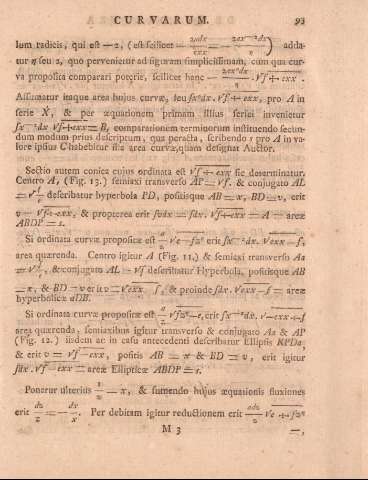 CURVARUM. 93
lum radicis, qui est — 2, (est scilicet
tur η seu 2, quo pervenitur ad figuram simplicissimam, cum qua cur-
va proposita comparari poterit, scilicet hanc
Assumatur itaque area hujus curvæ, seu pro A in
serie X, & per æquationem primam illius seriei invenietur
= B, comparationem terminorum instituendo secun-
dum modum prius descriptum, qua peracta, scribendo 1 pro A in va-
lore ipsius C habebitur illa area curvæ, quam designat Auctor.
Sectio autem conica cujus ordinata est √f+exx sic determinatur.
Centro A, (Fig. 13.) semiaxi transverso AP=√f. & conjugato AL
describatur hyperbola PD, positisque AB=x, BD=v, erit
v=√f+exx, & propterea erit = A = areæ
ABDP = s.
Si ordinata curvæ propositæ est erit
area quærenda. Centro igitur A (Fig. 11.) & semiaxi transverso Aa
& conjugato AL = √f describatur Hyperbola, positisque AB
=x, & BD=v erit v=√exx—f, & proinde = areæ
hyperbolicæ aDB.
Si ordinata curvæ propositæ est erit
area quærenda, semiaxibus igitur transverso & conjugato Aa & AP
(Fig. 12.) iisdem ac in casu antecedenti describatur Ellipsis KPDa,
& erit v=√f—exx, positis AB=x & BD=v, erit igitur
= areæ Ellipticæ ABDP = s.
Ponatur ulterius 1/z = x, & sumendo hujus æquationis fluxiones
erit Per debitam igitur reductionem erit
M 3